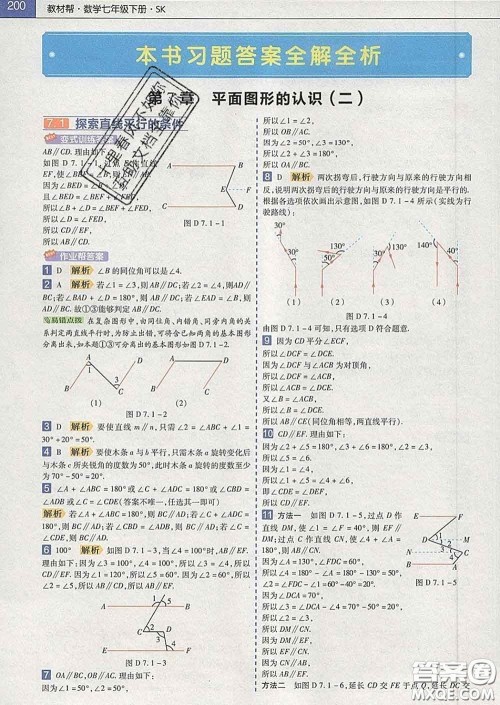 200 教材帮·数学七年级下册·SK
本书习题答案全解全析
第7章 平面图形的认识(二)
7.1 探索直线平行的条件
变式训练答案
AB∥CD. 理由如下:
如图 D 7.1-1,
因为∠BED=∠B+∠D,
所以∠BEF+∠FED=∠B+∠D.
因为∠B=∠BEF,
所以∠D=∠FED,
所以 CD∥EF,
所以 AB∥CD.
图 D 7.1-1
作业帮答案
1 D 解析 ∠B 的同位角可以是∠4.
2 A 解析 若∠1=∠3,则 AB∥DC;若∠2=∠4,则AD∥BC;若∠A+∠D=180°,则 AB∥DC;若∠A+∠B=180°,则 AD∥BC. 故①③能够判定 AB∥DC.
易漏错点拨 在复杂图形中,由同位角、内错角、同旁内角的关系判定两直线平行时,为防止出错,可将分离出基本图形,如本题①③可分离出的基本图形如图 D 7.1-2
(1) (2)
图 D 7.1-2
3 D 解析 要使直线 m∥n,只需∠2=∠ABC+∠1=30°+20°=50°.
4 B 解析 要使木条 a 与 b 平行,木条 a 旋转变化后与木条 c 所夹锐角的度数为 50°,此时木条 a 旋转的度数至少为 70°-50°=20°.
5 ∠A+∠ABC=180°或∠C+∠ADC=180°或∠CBD=∠ADB 或∠C=∠CDE(答案不唯一,任填一个即可)
解析 若∠A+∠ABC=180°,则 BC∥AD;若∠C+∠ADC=180°,则 BC∥AD;若∠CBD=∠ADB,则 BC∥AD;若∠C=∠CDE,则 BC∥AD.
6 100° 解析 如图 D 7.1-3,当∠4=100°时,AB∥EF. 理由如下:因为∠3=100°,∠4=100°,所以∠3=∠4,所以CD∥EF. 因为∠1=60°,∠2=120°,所以∠5=60°,所以∠5+∠2=180°,所以 AB∥CD,所以 AB∥EF.
图 D 7.1-3
7 OA∥BC, OB∥AC. 理由如下:
因为∠1=50°,∠2=50°,
所以∠1=∠2,
所以 OB∥AC.
所以 OA∥BC.
8 D 解析 两次拐弯后,行驶方向与原来的行驶方向相反,说明两次拐弯后的行驶方向与原来的行驶方向是平行的. 根据各选项依次画出示意图,如图 D 7.1-4 所示(实线为行驶路线):
(1) (2) (3) (4)
图 D 7.1-4
由图 D 7.1-4 可知,只有选项 D 符合题意.
9 因为 CD 平分∠ECF,
所以∠DCF=∠DCE.
因为∠DCF 与∠ACB 为对顶角,
所以∠DCF=∠ACB,
所以∠DCE=∠ACB.
又∠B=∠ACB,
所以∠B=∠DCE,
所以 AB∥CE(同位角相等,两直线平行).
10 CD∥EF. 理由如下:
因为∠1+∠2+∠5=∠3+∠6+∠4=180°,
又∠1=∠2,∠3=∠4,∠2=∠3,
所以∠5=∠6,
即∠CDE=∠DEF,
所以 CD∥EF.
11 方法一 如图 D 7.1-5,过点 D 作直线 DM,使∠1=∠F=50°,则 DM∥EF.
因为∠CDF=90°,
所以∠2=∠FDC-∠1=90°-50°=40°.
过点 C 作直线 CN,使∠3=∠2=40°,
则 DM∥CN,
所以∠4=∠BCD-∠3=70°-40°=30°.
因为∠ABC=30°,
所以∠4=∠ABC,
所以 AB∥CN.
因为 DM∥EF,
DM∥CN,
所以 CN∥EF,
所以 AB∥EF.
图 D 7.1-5
方法二 如图 D 7.1-6,延长 CD 交 FE 于点 Q,延长 DC 交